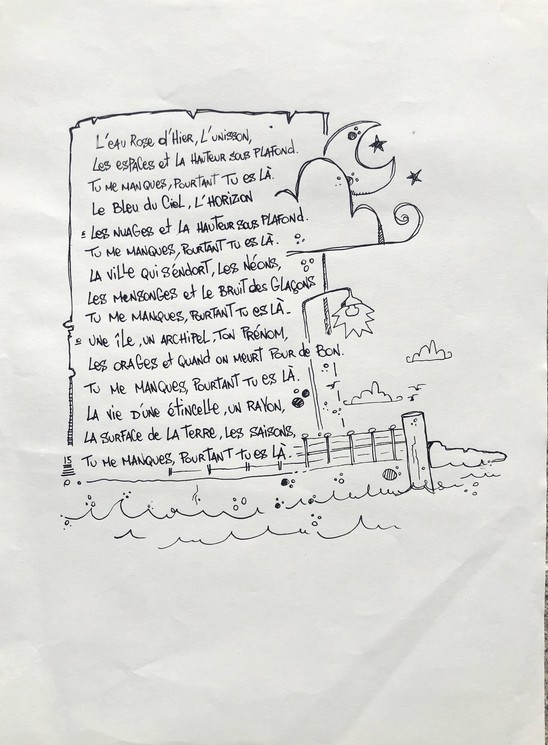 L'eau Rose d'Hier, L'unisson,
Les espaces et la hauteur sous plafond.
Tu me manques, pourtant tu es là.
Le Bleu du Ciel, L'horizon
5 Les nuages et la hauteur sous plafond.
Tu me manques, pourtant tu es là.
La ville qui s'endort, Les néons,
Les mensonges et le bruit des glaçons
Tu me manques, pourtant tu es là.
10 Une île, un archipel, ton prénom,
Les orages et quand on meurt pour de bon.
Tu me manques, pourtant tu es là.
La vie d'une étincelle, un rayon,
La surface de la terre, les saisons,
15 Tu me manques, pourtant tu es là.